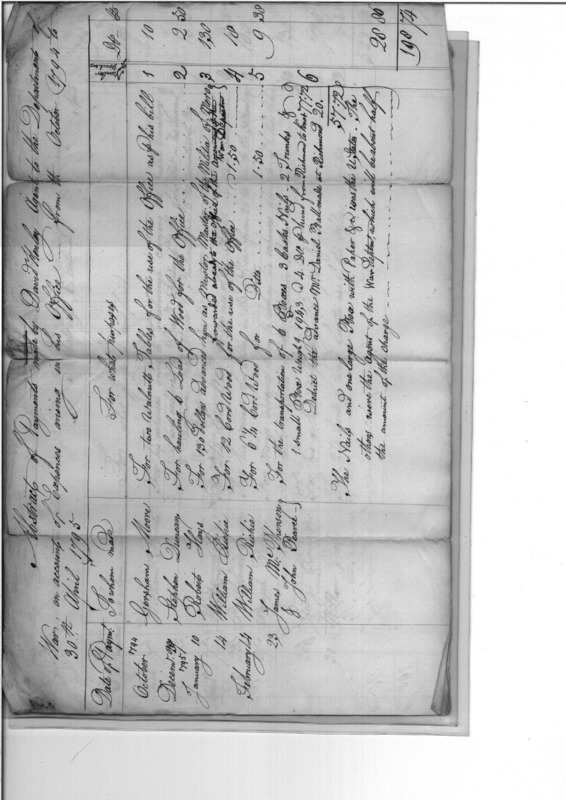 Abstract of Payments made by David Henley Agent to the Department of
War on account of Expences arising in his Office from th October 1794 to
30th April 1795
Date of Paymt To whom made For what purposes No. Ds Cts
1794
October Gorpham Moore For two Walnutt Tables for the use of the Office as pr his bill 1 10
Decemr. Stephen Duncan For hauling 6 Load of Wood for the Office 2 2 50
1795
January 10 Robert Hays For 130 Dollars advanced him as Muster Master of the Militia of Mero 3 130
forwarded already to the Office of the Accountant of the
War Department
14 William Richie For 12 Cord Wood for the use of the Office 1.50 4 18
February 14 William Richie For 6 1/4 Cord Wood for Ditto 1.50 5 9 38
23 James McPherson
& John Shavel
For the transportation of 6 Boxes 3 Casks Nails 2 Trunks &
1 Small Box Weight 1943 @ 4 Ds pr hund from Richmond to Knox 77.72 6
Deduct the advance Mr. Daniel Hall made at Richmond 20.
57.72
The Nails and one large Box with Paper &c was the U. States. The
others were the Agent of the War Departmt, which will be about half
the amount of the charge 28 86
198 74